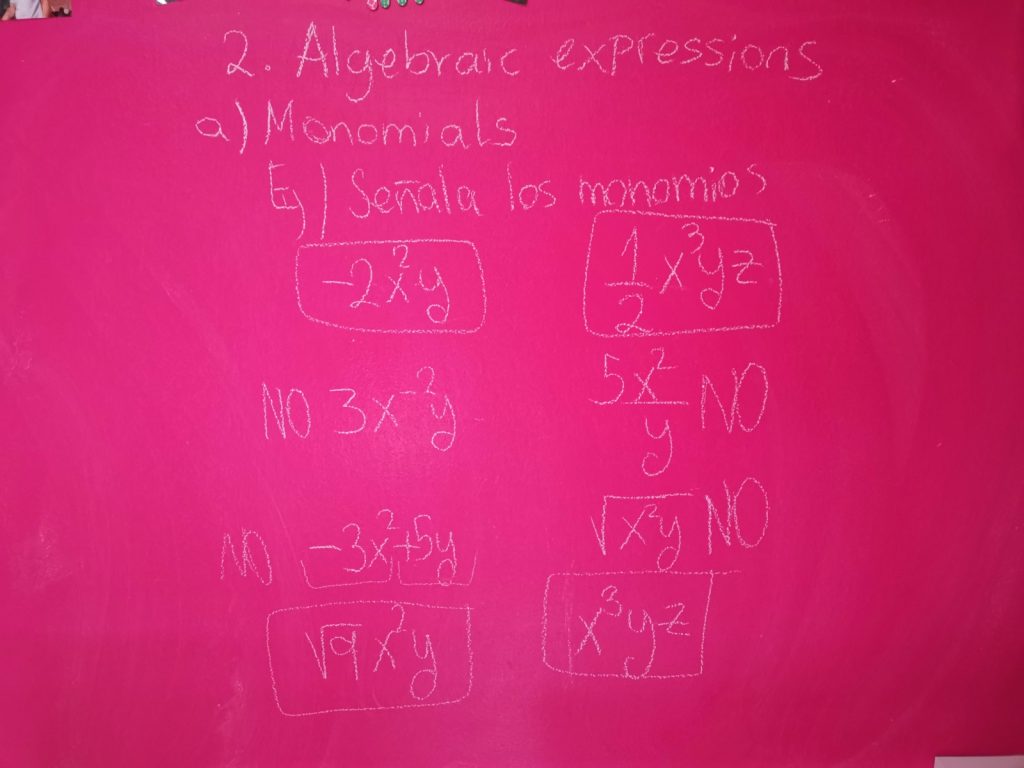 2. Algebraic expressions
a) Monomials
Ej) Señala los monomios
-2x²y    1/2 x³yz
NO 3x⁻²y    5x²/y NO
NO -3x²+5y    √(x²y) NO
√9 x²y    x³yz